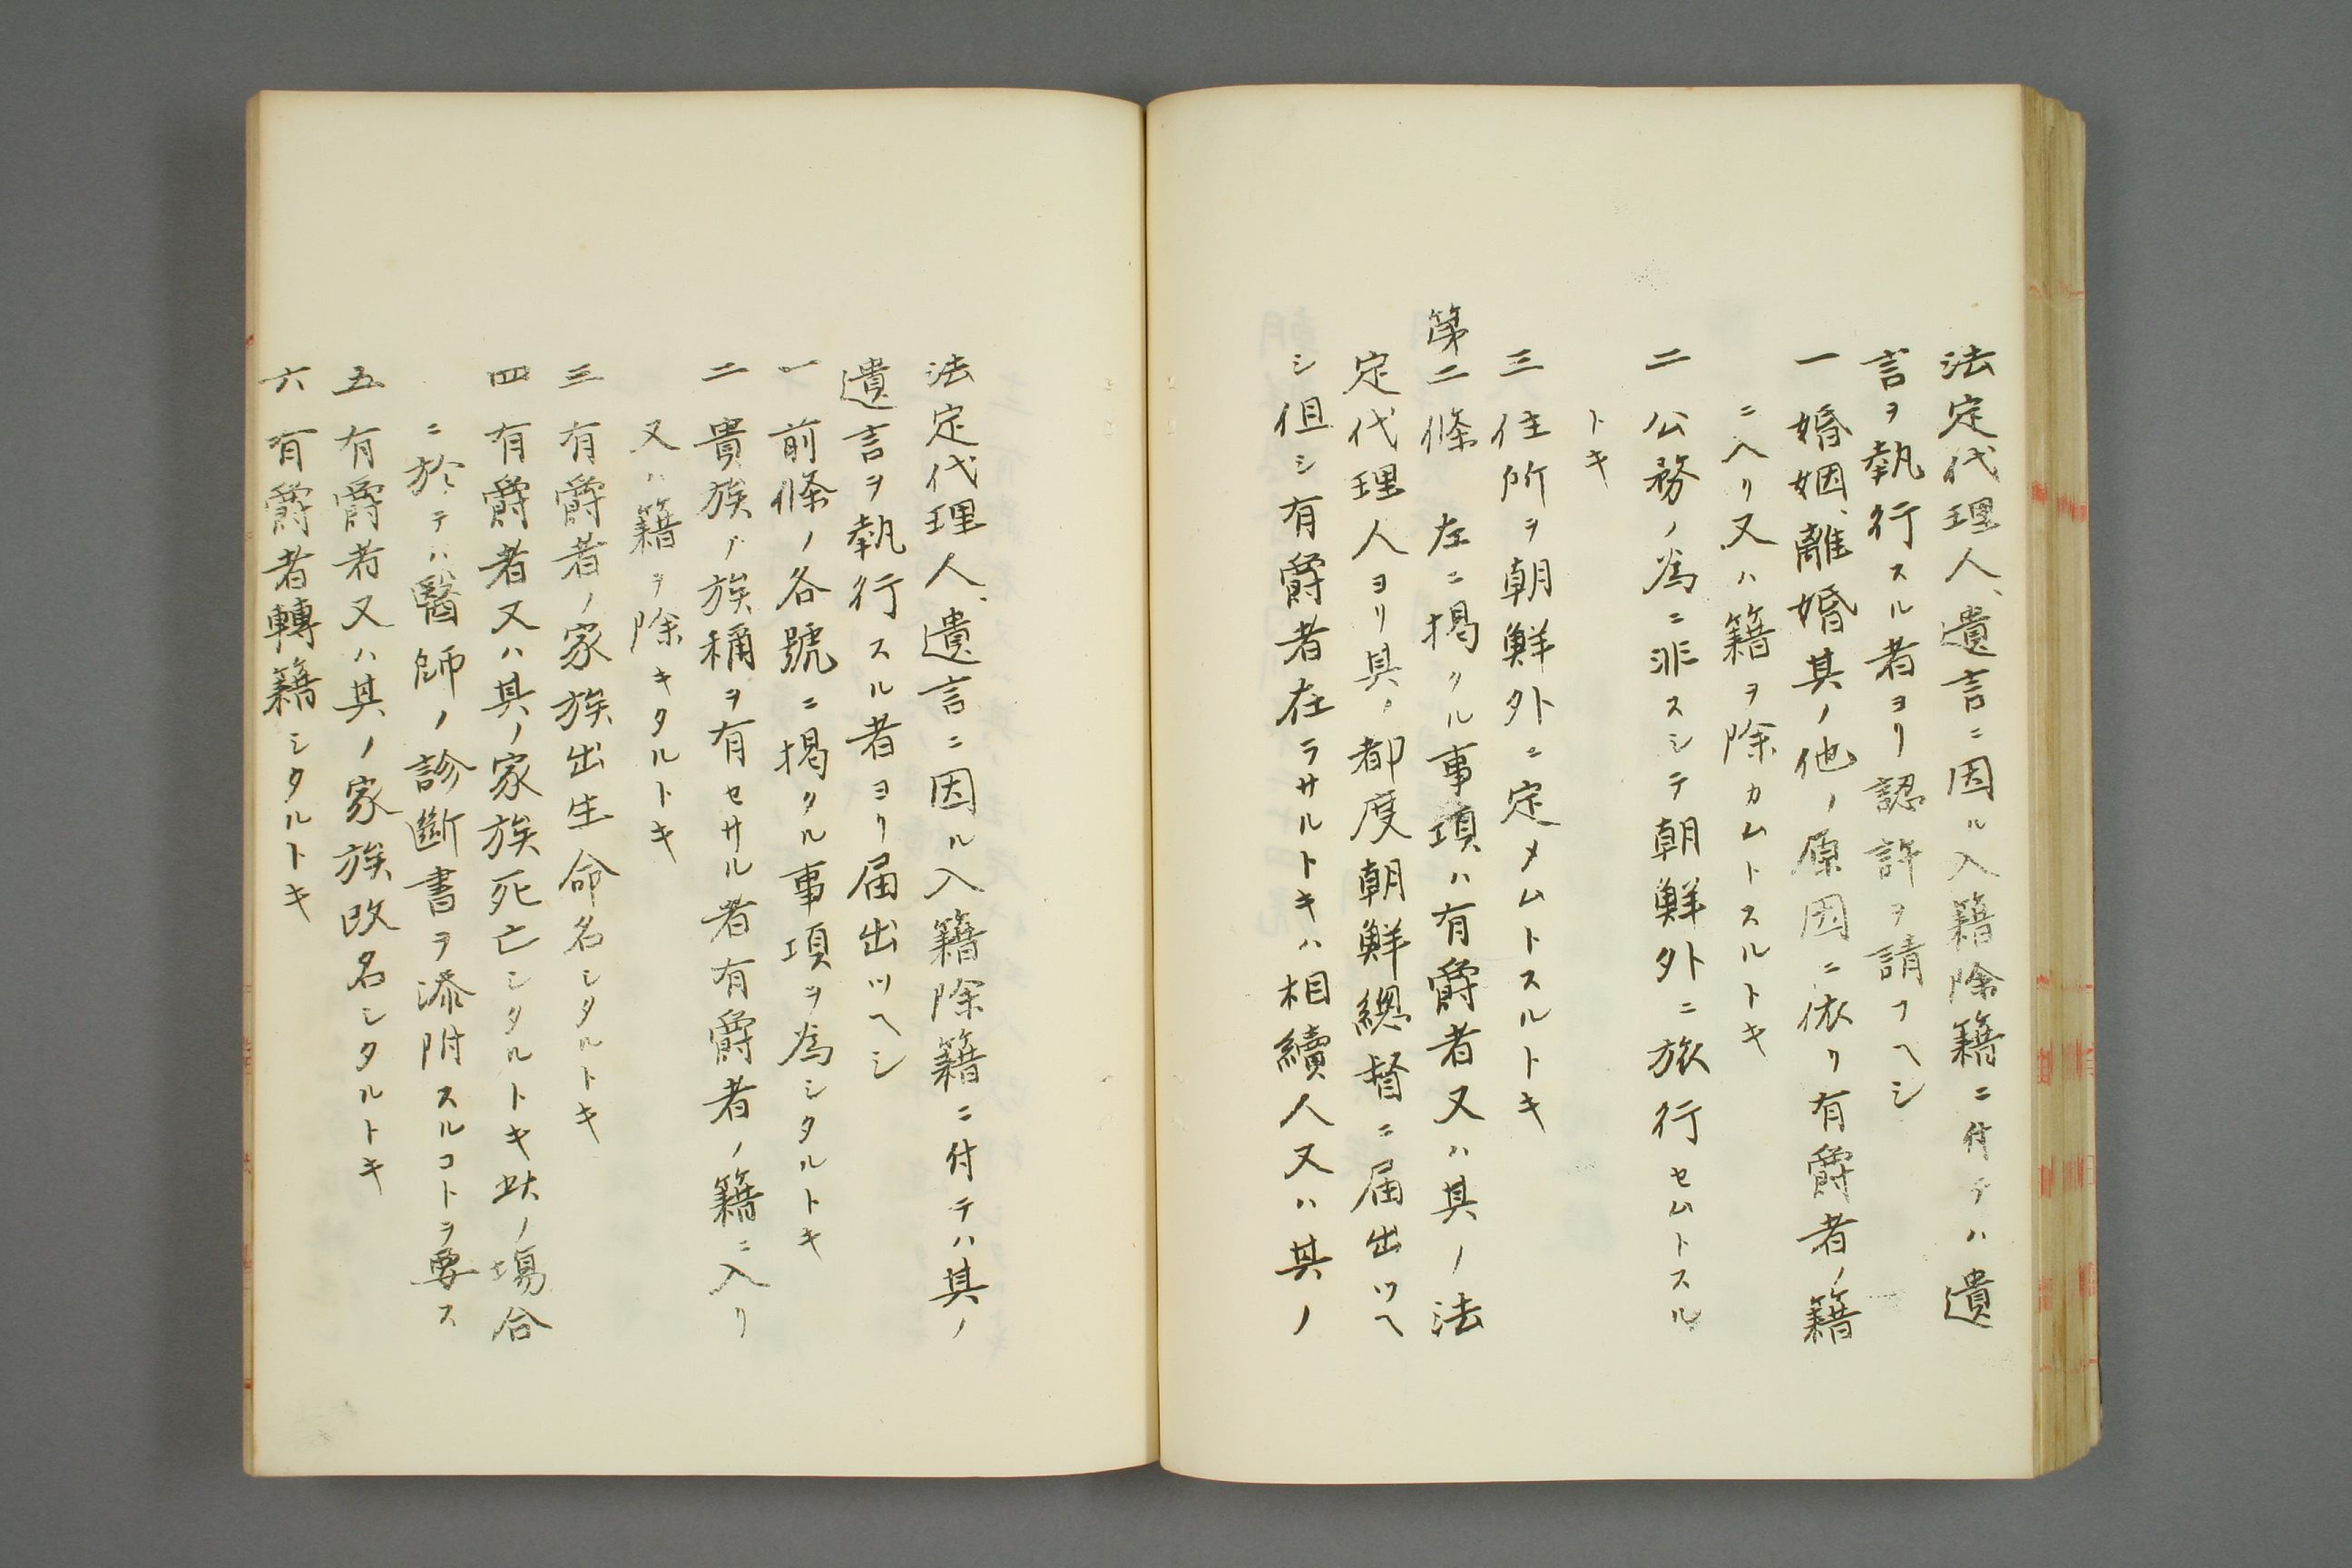 法定代理人、遺言ニ因ル入籍除籍ニ付テハ遺
言ヲ執行スル者ヨリ認許ヲ請フヘシ
一 婚姻、離婚其ノ他ノ原因ニ依リ有爵者ノ籍
ニ入リ又ハ籍ヲ除カムトスルトキ
二 公務ノ為ニ非スシテ朝鮮外ニ旅行セムトスル
トキ
三 住所ヲ朝鮮外ニ定メムトスルトキ
第二條 左ニ掲クル事項ハ有爵者又ハ其ノ法
定代理人ヨリ其ノ都度朝鮮總督ニ届出ツヘ
シ但シ有爵者在ラサルトキハ相續人又ハ其ノ
法定代理人、遺言ニ因ル入籍除籍ニ付テハ其ノ
遺言ヲ執行スル者ヨリ届出ツヘシ
一 前條ノ各號ニ掲クル事項ヲ為シタルトキ
二 貴族ノ族稱ヲ有セサル者有爵者ノ籍ニ入リ
又ハ籍ヲ除キタルトキ
三 有爵者ノ家族出生命名シタルトキ
四 有爵者又ハ其ノ家族死亡シタルトキ此ノ場合
ニ於テハ醫師ノ診斷書ヲ添附スルコトヲ要ス
五 有爵者又ハ其ノ家族改名シタルトキ
六 有爵者轉籍シタルトキ